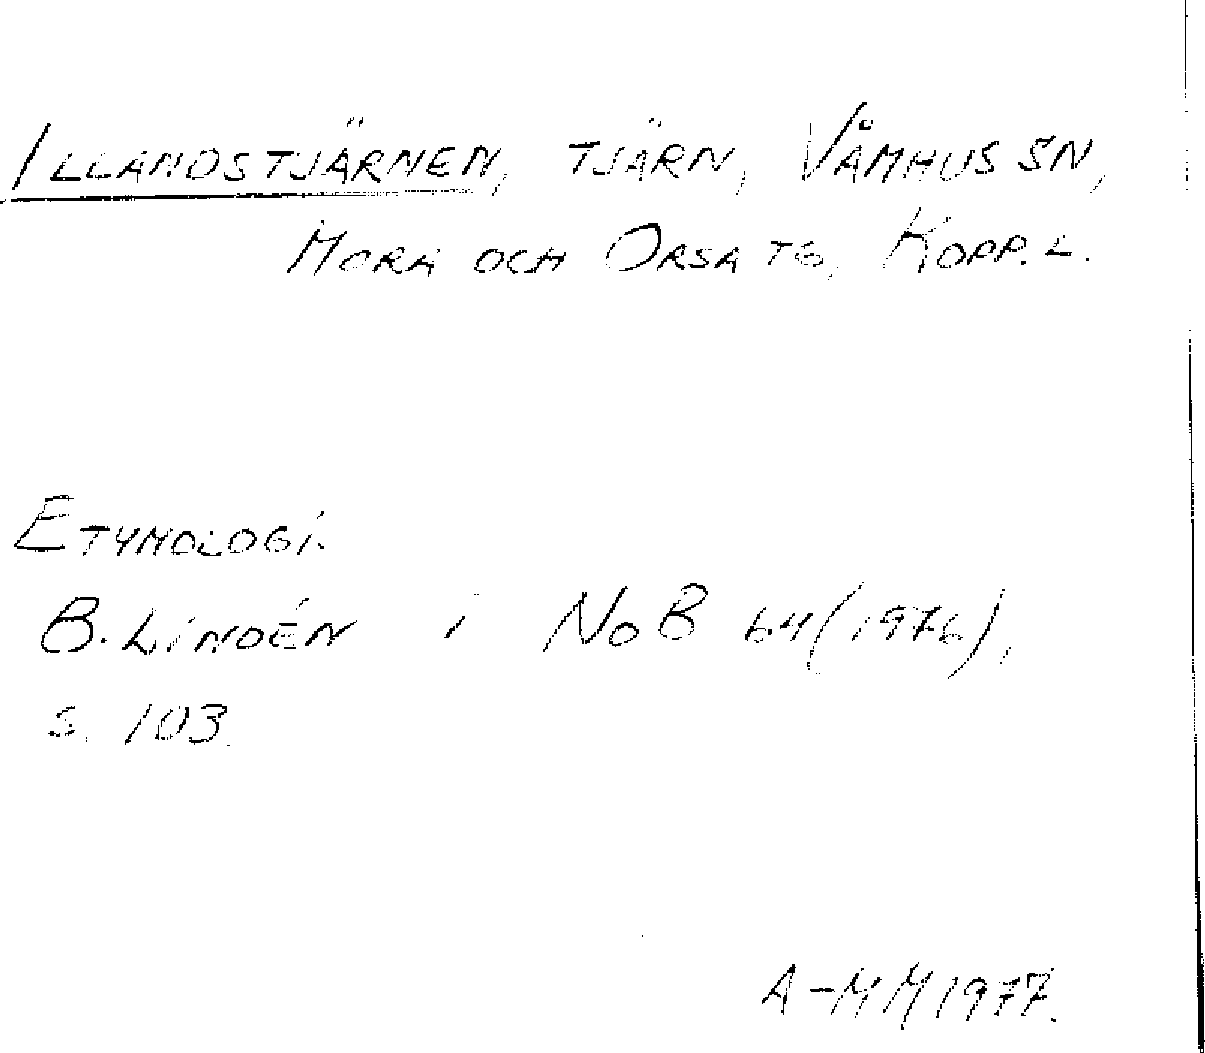 ILLANDSTJÄRNEN, TJÄRN, VÅMHUS SN,
MORA OCH ORSA TG, KOPP. L.
ETYMOLOGI.
B. LINDÉN i NoB 64 (1976),
S. 103.
A-MM 1977.